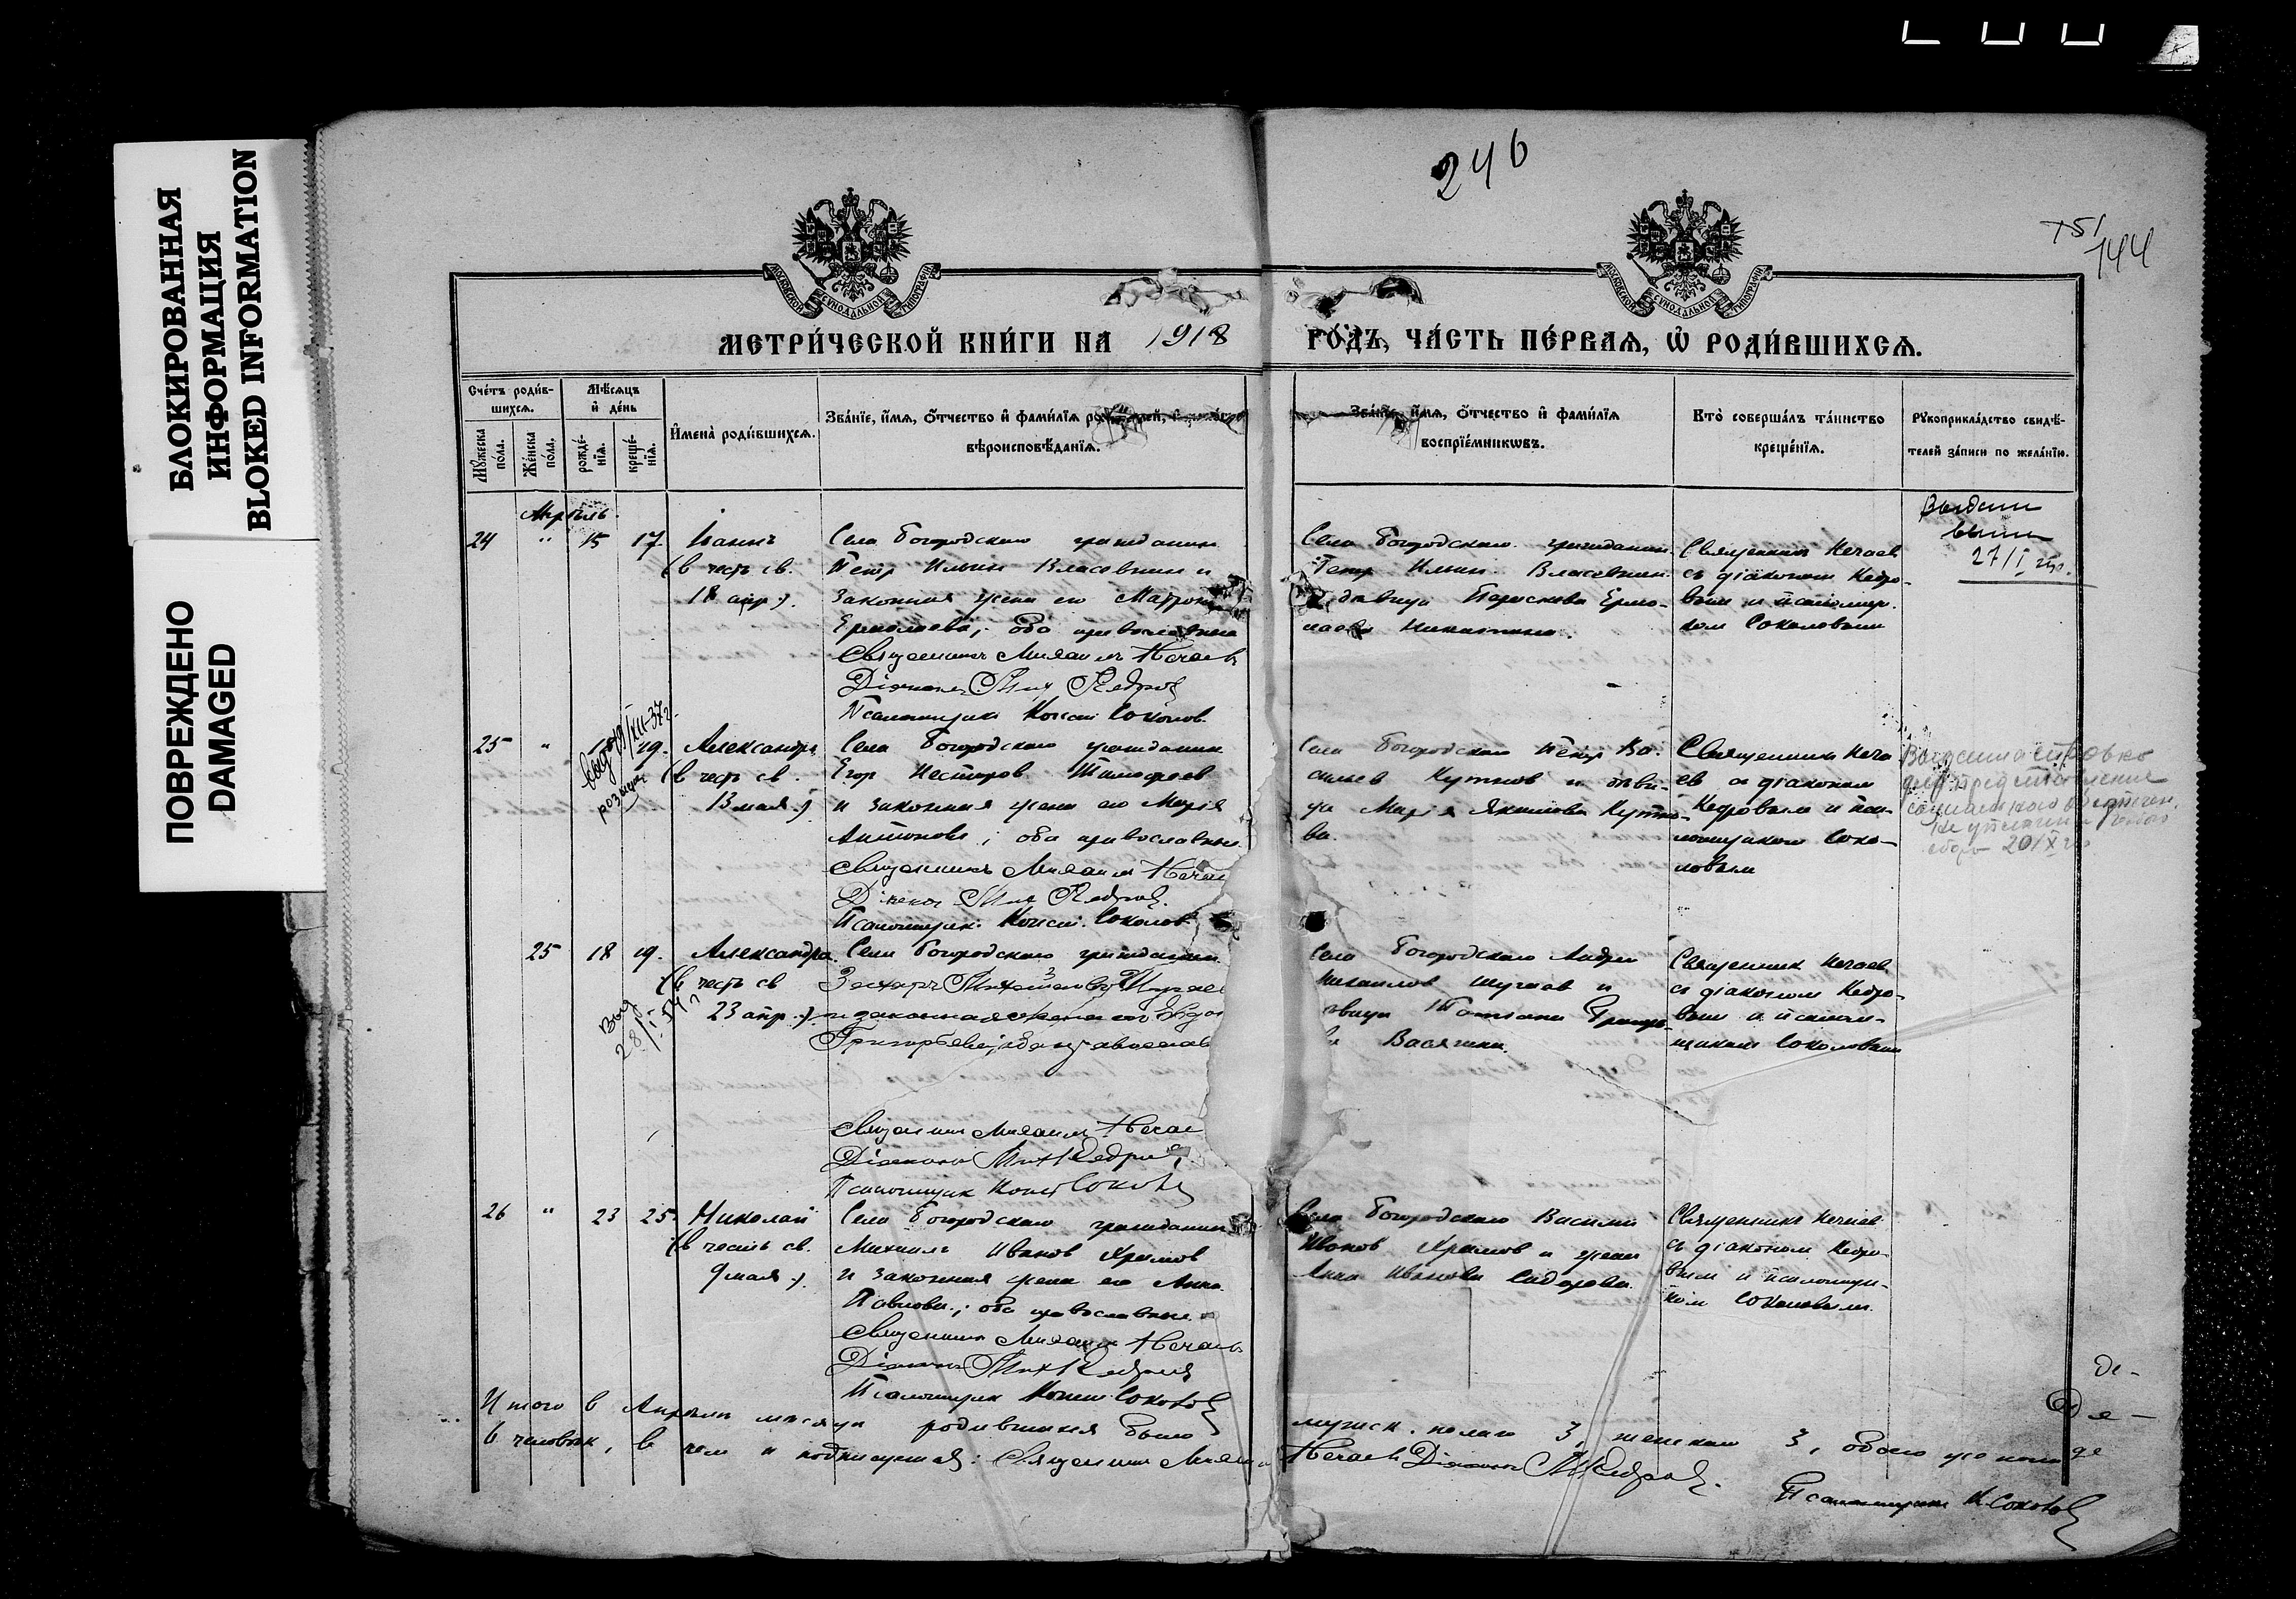 БЛОКИРОВАННАЯ
ИНФОРМАЦИЯ
BLOKED INFORMATION
ПОВРЕЖДЕНО
DAMAGED
246
151
144
МОСКОВСКОЙ СѴНОДАЛЬНОЙ ТИПОГРАФІИ
МОСКОВСКОЙ СѴНОДАЛЬНОЙ ТИПОГРАФІИ
МЕТРИ́ЧЕСКОЙ КНИ́ГИ НА 1918 ГО́ДЪ, ЧА́СТЬ ПЕ́РВАЯ, Ѡ РОДИ́ВШИХСЯ.
Сче́тъ роди́в-
шихся.
Мꙋ́жеска
по́ла.
Же́нска
по́ла.
Мѣ́сяцъ
и҆ де́нь
рожде́-
нїя.
креще́-
нїя.
И҆мена̀ роди́вшихся.
Зва́нїе, и҆́мя, ѻ҆́тчество и҆ фами́лїя
вѣроисповѣ́данїя.
Зва́нїе, и҆́мя, ѻ҆́тчество и҆ фами́лїя
воспрїе́мникѡвъ.
Кто̀ соверша́лъ та́инство
креще́нїя.
Рꙋкоприкла́дство свидѣ́-
телей за́писи по жела́нїю.
Апрѣль.
24 " 15 17
Іоаннъ
(в честь св.
18 апр.).
Села Богородскаго гражданин
Петр Ильин Власовнин и
законная жена его Матрона
Ермолаева; оба православные
Священникъ Михаилъ Нечаев
Діаконъ Мих Кедров
Псаломщик Конст. Соколов.
Села Богородскаго гражданин
Петр Ильин Власовнин
и девица Параскева Ермо-
лаева
Священник Нечаев
съ діаконом Кедро-
вым и псаломщи-
ком Соколовым
27/I
25 " 19.
Александр
(в честь св.
13 мая.)
Села Богородскаго гражданин
Егор Нестеров Тимофеев
и законная жена его Марія
Антонова; оба православные.
Священникъ Михаилъ Нечаев
Діаконъ Мих Кедров.
Псаломщик Конст. Соколов.
Села Богородскаго Петр Ва-
сильев и деви-
ца Марія Якимова
ва.
Священник Неча
ев съ діаконом
Кедровым и пса-
ломщиком Соко-
ловым
20/X
25 18 19.
Александра
(в честь св
23 апр.)
Выд
28/I
Села Богородскаго гражданин
Захаръ Михайловъ
и законная жена его Евдо
Григорьева; оба православ
Священник Михаилъ Нечаев
Діаконъ Мих Кедров
Псаломщик Конст Соколов
Села Богородскаго Андрей
Михайлов и
девица Татьяна Григорь-
Васягина.
Священник Нечаев
съ діаконом Кедро-
вым и псалом-
щиком Соколовым
26 " 23 25.
Николай
(в честь св.
9 мая.)
Села Богородскаго гражданин
Михаилъ Иванов Храмов
и законная жена его Анна
Павлова; оба православные.
Священник Михаилъ Нечаев
Діаконъ Мих Кедров
Псаломщик Конст Соколов
Села Богородскаго Василий
Иванов Храмов и жена
Анна Иванова Сидорова.
Священник Нечаев
съ діаконом Кедро-
вым и псаломщи-
ком Соколовым.
Итого в Апрѣлѣ месяце родившихся было мужск. полаго 3, женскаго 3, обоего
6 человѣк, в чем и подписуемся: Священник Михаил Нечаев Діаконъ М. Кедров.
Псаломщик К. Соколов